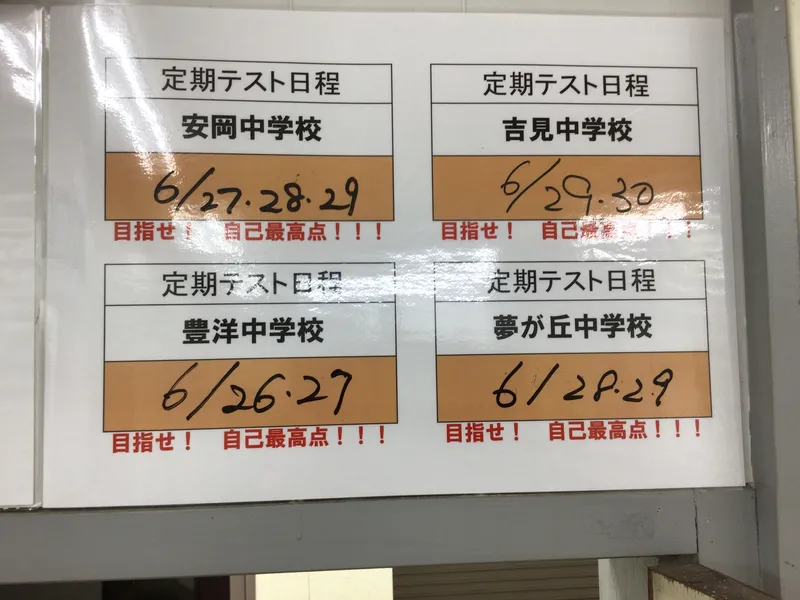 定期テスト日程
安岡中学校
6/27・28・29
目指せ！　自己最高点！！！
定期テスト日程
吉見中学校
6/29・30
目指せ！　自己最高点！！！
定期テスト日程
豊洋中学校
6/26・27
目指せ！　自己最高点！！！
定期テスト日程
夢が丘中学校
6/28・29
目指せ！　自己最高点！！！